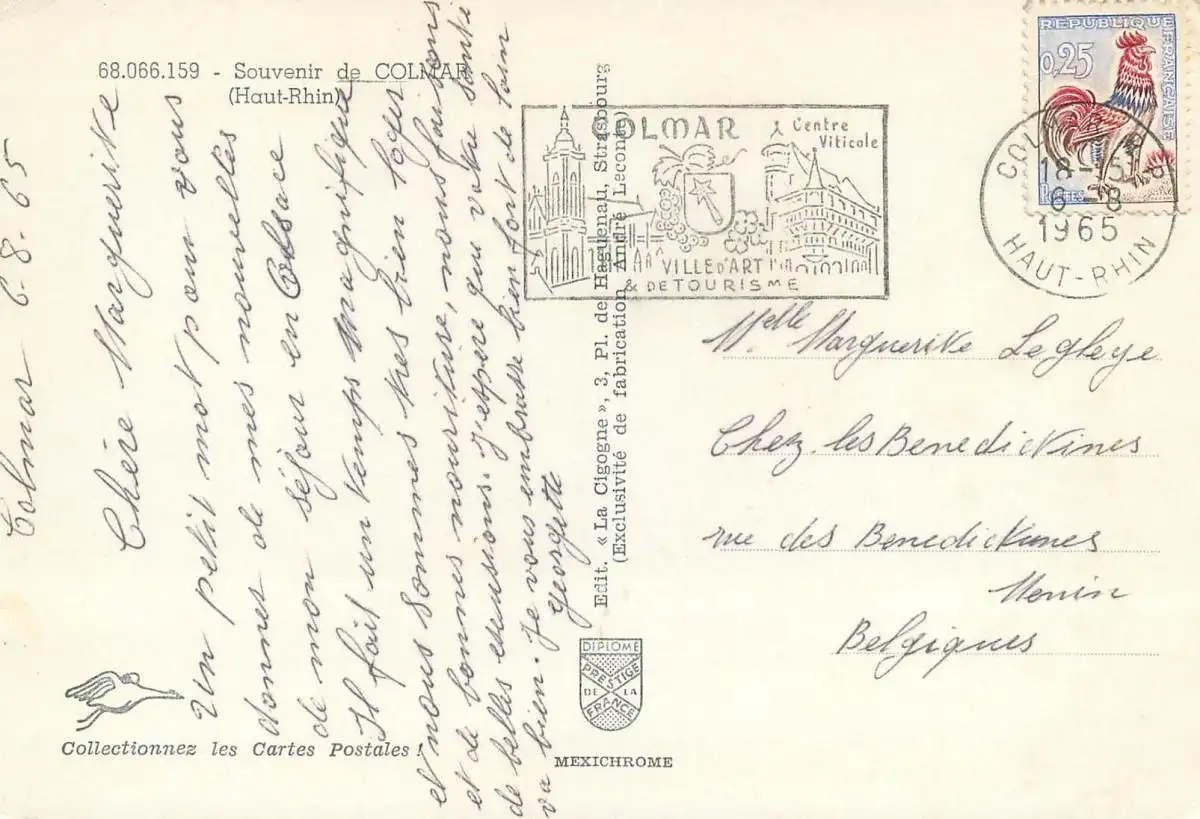 68.066.159 - Souvenir de COLMAR
(Haut-Rhin)
Colmar 6-8-65
Chère Marguerite
Un petit mot pour vous
donner de mes nouvelles
de mon séjour en Alsace
Il fait un temps magnifique
et nous sommes très bien loger
et de bonnes nourriture, nous faisons
de belles excursions. J'espère que votre santé
va bien. Je vous embrasse bien fort de loin
Georgette
Edit. «La Cigogne», 3, Pl. de Haguenau, Strasbourg
(Exclusivité de fabrication André Leconte)
COLMAR
Centre
Viticole
VILLE D'ART
& DE TOURISME
REPUBLIQUE FRANÇAISE
0,25
POSTES
COLMAR
18-15
6-8
1965
HAUT-RHIN
Melle Marguerite Legleye
Chez les Benedictines
rue des Benedictines
Menin
Belgiques
DIPLOME
PRESTIGE
DE LA
FRANCE
Collectionnez les Cartes Postales !
MEXICHROME